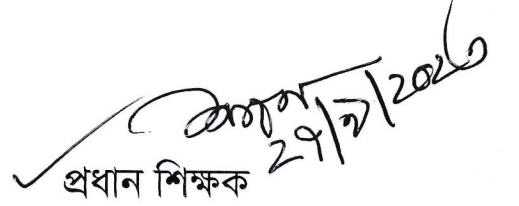 ২৭/৯/২০২৩
প্রধান শিক্ষক